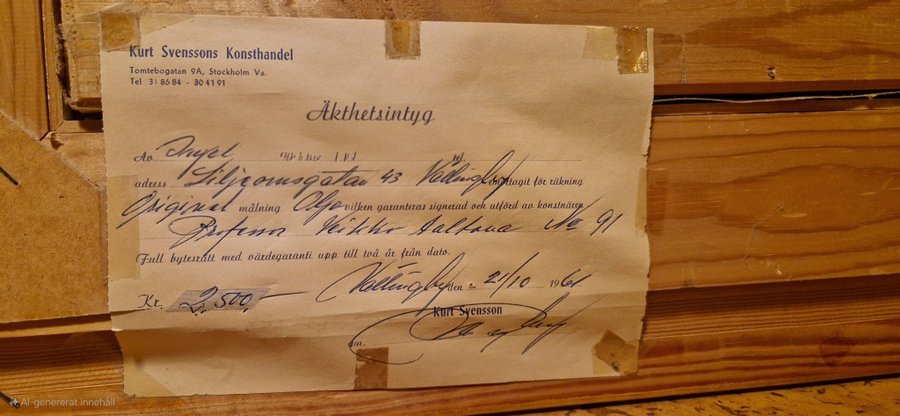 Kurt Svenssons Konsthandel
Tomtebogatan 9A, Stockholm Va.
Tel 31 86 84 - 30 41 91
Äkthetsintyg
Av
adress 43 Vällingby mottagit för räkning
Original målning Olja vilken garanteras signerad och utförd av konstnären
Professor Veikko Aaltona No 91
Full bytesrätt med värdegaranti upp till två år från dato.
Vällingby den 21/10 1961
Kr. 2,500,-
Kurt Svensson
AI-genererat innehåll